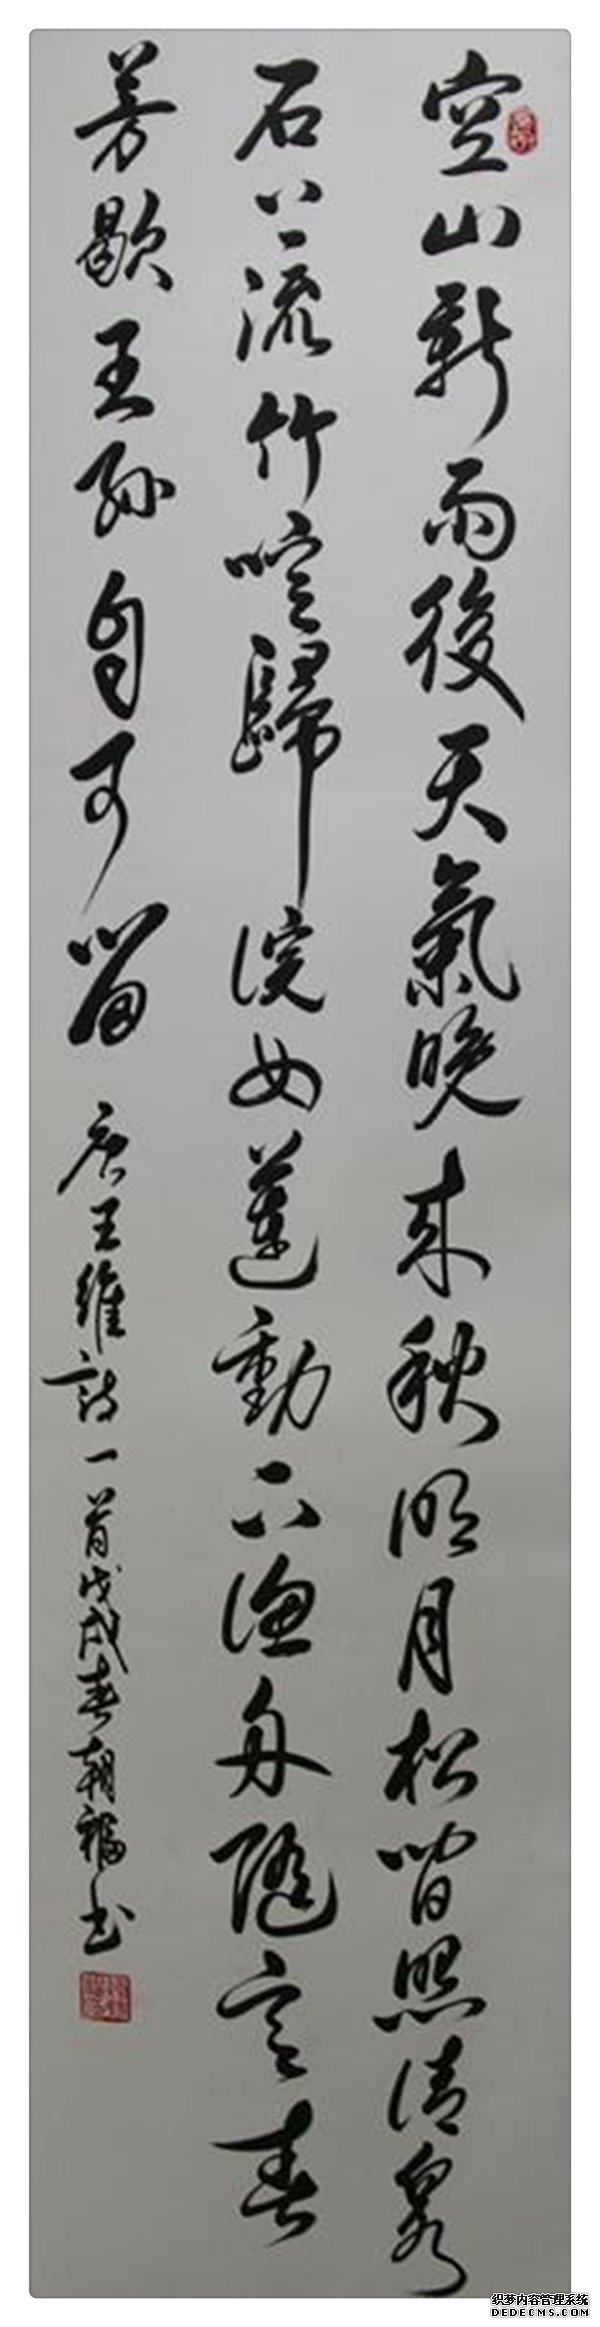 空山新雨後天氣晚来秋明月松間照清泉
石上流竹喧歸浣女蓮動下漁舟隨意春
芳歇王孫自可留 唐王維詩一首戊戌春朝福书
织梦内容管理系统
DEDECMS.COM